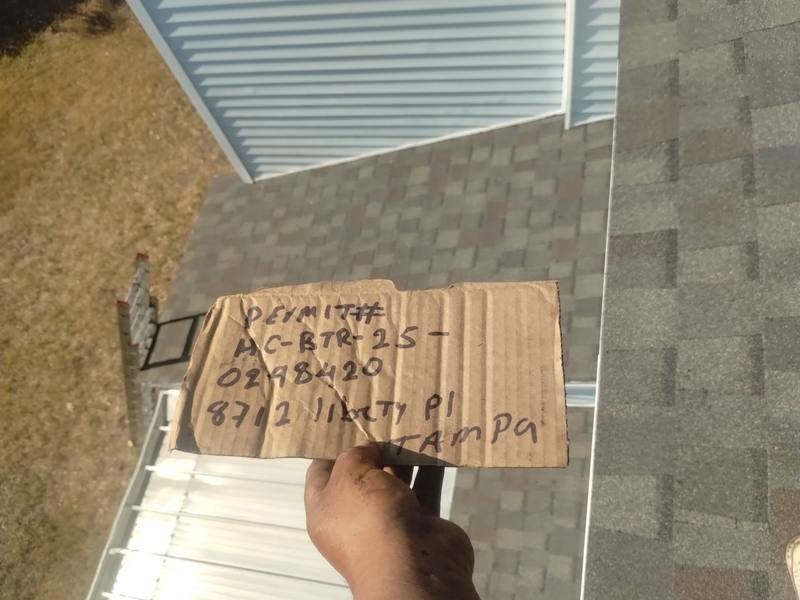 PErMIT#
HC-BTR-25-
0298420
8712 liberTy Pl
TAMPa